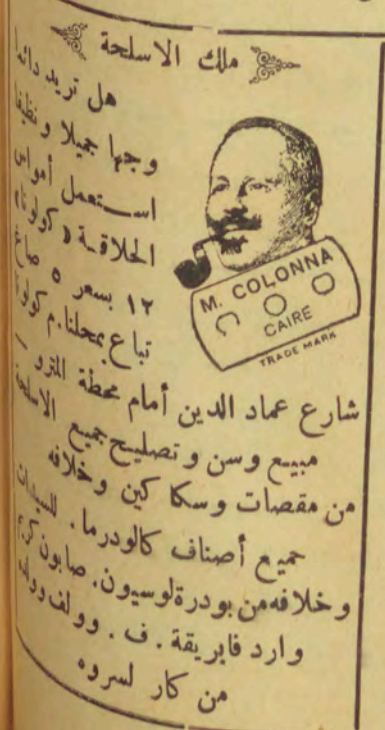 ملك الاسلحة
هل تريد دائما
وجها جميلا ونظيفا
استعمل أمواس
الحلاقة « كولونا »
١٢ بسعر ٥ صاغ
تباع بمحلنا . م كولونا
M. COLONNA
CAIRE
TRADE MARK
شارع عماد الدين أمام محطة المترو –
مبيع وسن وتصليح جميع الاسلحة
من مقصات وسكاكين وخلافه
جميع أصناف كالودرما . للسيدات
وخلافه من بودرة لوسيون . صابون كريم
وارد فابريقة . ف . وولف وولده
من كار لسروه